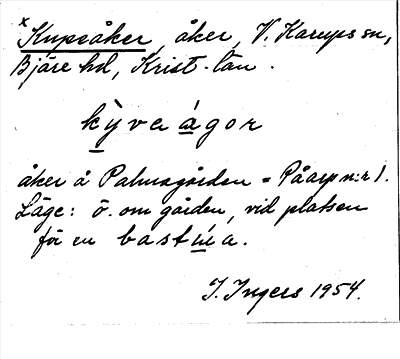 x Kupeåker, åker, V. Karups sn,
Bjäre hd, Krist. län.
kỳve ágor
åker å Palmagården = Påarp n:r 1.
Läge: ö. om gården, vid platsen
för en bastúa.
I. Ingers 1954.